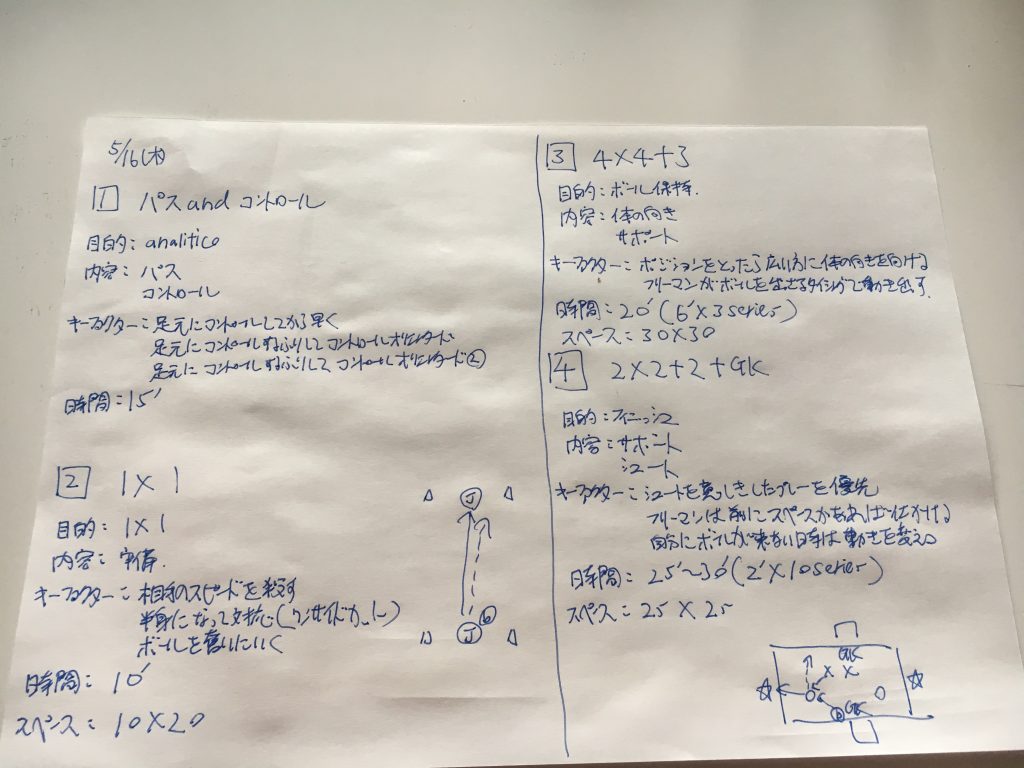 5/16(木)
1 パスandコントロール
目的：analitico
内容：パス
コントロール
キーファクター：足元にコントロールしてから早く
足元にコントロールするふりしてコントロールオリエンタード
足元にコントロールするふりしてコントロールオリエンタード②
時間：15'
2 1×1
目的：1×1
内容：守備
キーファクター：相手のスピードを殺す
半身になって対応(ワンサイドカット)
ボールを奪いにいく
時間：10'
スペース：10×20
J
J
3 4×4+3
目的：ボール保持.
内容：体の向き
サポート
キーファクター：ポジションをとったら広い方に体の向きを向ける
フリーマンがボールを出せるタイミングで動き出す.
時間：20'(6'×3serier)
スペース：30×30
4 2×2+2+GK
目的：フィニッシュ
内容：サポート
シュート
キーファクター：シュートを意しきしたプレーを優先
フリーマンは前にスペースがあれば仕かける
自分にボールが来ない時は動きを変える
時間：25'~30'(2'×10serier)
スペース：25×25
GK
X X
GK